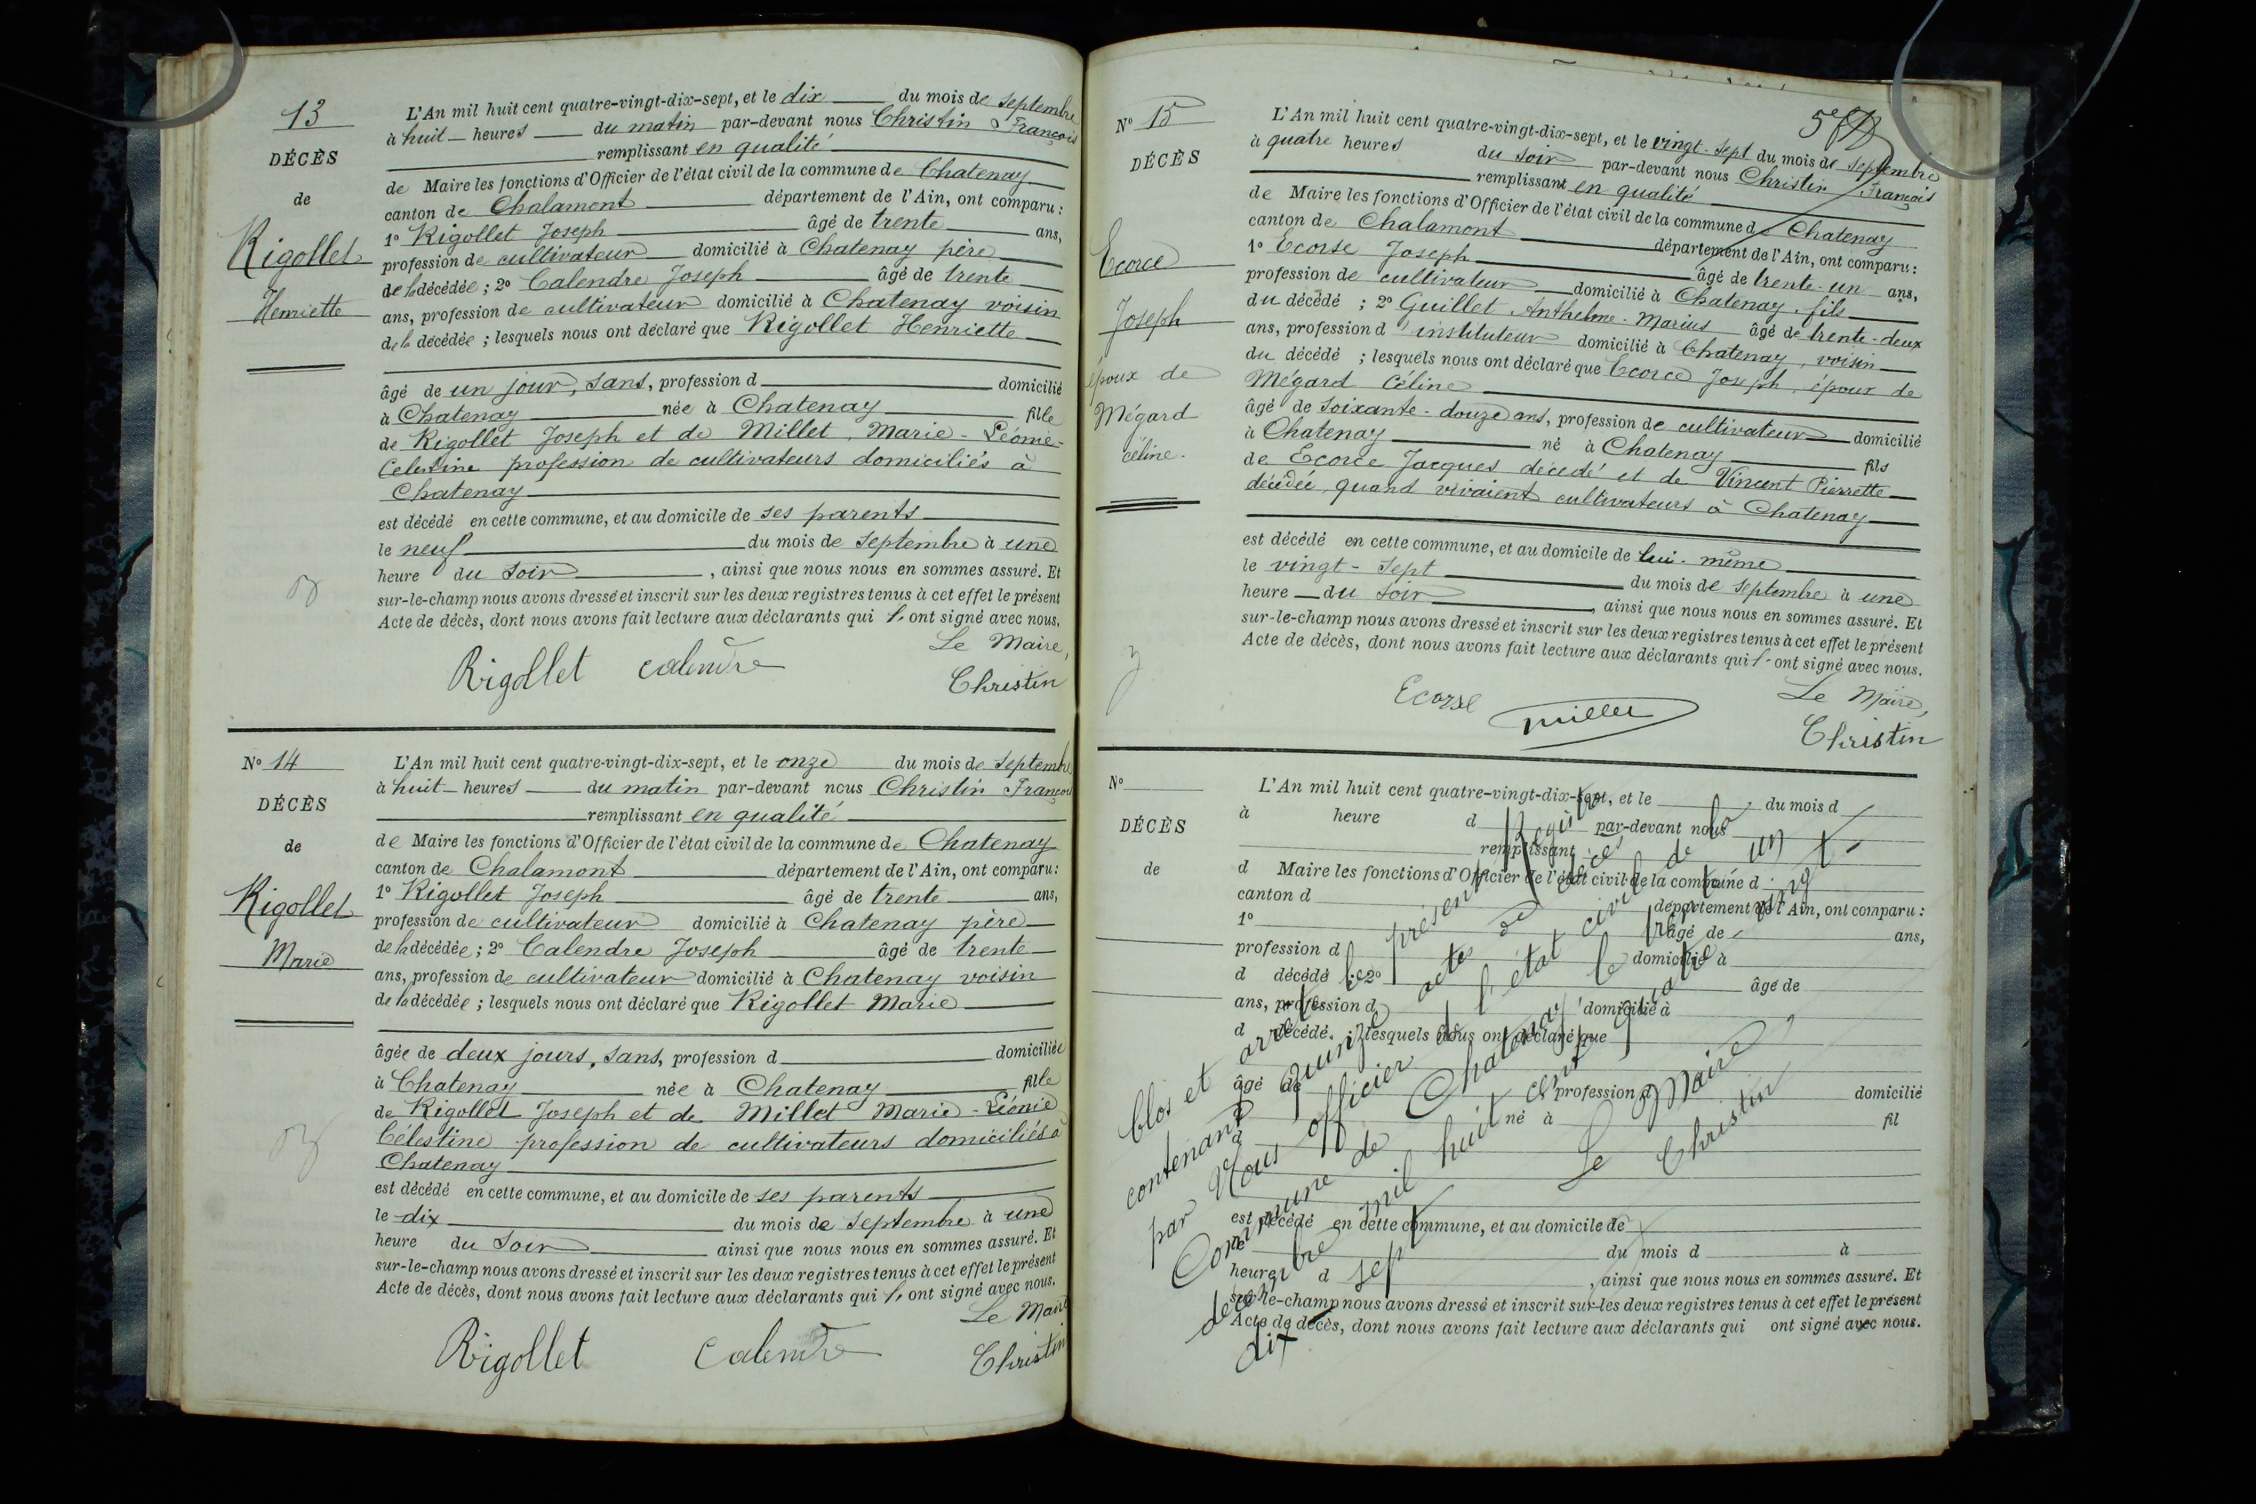 13
DÉCÈS
de
Rigollet
Henriette
L'An mil huit cent quatre-vingt-dix-sept, et le dix du mois de septembre
à huit heures du matin par-devant nous Christin François
remplissant en qualité
de Maire les fonctions d'Officier de l'état civil de la commune de Chatenay
canton de Chalamont département de l'Ain, ont comparu :
1º Rigollet Joseph âgé de trente ans,
profession de cultivateur domicilié à Chatenay père
de la décédée ; 2º Calendre Joseph âgé de trente
ans, profession de cultivateur domicilié à Chatenay voisin
de la décédée ; lesquels nous ont déclaré que Rigollet Henriette
âgé de un jour, sans, profession d domicilié
à Chatenay née à Chatenay fille
de Rigollet Joseph et de Millet, Marie-Léonie-
Celestine profession de cultivateurs domiciliés à
Chatenay
est décédé en cette commune, et au domicile de ses parents
le neuf du mois de septembre à une
heure du soir , ainsi que nous nous en sommes assuré. Et
sur-le-champ nous avons dressé et inscrit sur les deux registres tenus à cet effet le présent
Acte de décès, dont nous avons fait lecture aux déclarants qui ont signé avec nous.
Le Maire,
Rigollet calendre Christin
Nº 14
DÉCÈS
de
Rigollet
Marie
L'An mil huit cent quatre-vingt-dix-sept, et le onze du mois de septembre
à huit heures du matin par-devant nous Christin François
remplissant en qualité
de Maire les fonctions d'Officier de l'état civil de la commune de Chatenay
canton de Chalamont département de l'Ain, ont comparu :
1º Rigollet Joseph âgé de trente ans,
profession de cultivateur domicilié à Chatenay père
de la décédée ; 2º Calendre Joseph âgé de trente
ans, profession de cultivateur domicilié à Chatenay voisin
de la décédée ; lesquels nous ont déclaré que Rigollet Marie
âgée de deux jours, sans, profession d domiciliée
à Chatenay née à Chatenay fille
de Rigollet Joseph et de Millet Marie-Léonie
Célestine profession de cultivateurs domiciliés à
Chatenay
est décédé en cette commune, et au domicile de ses parents
le dix du mois de septembre à une
heure du soir ainsi que nous nous en sommes assuré. Et
sur-le-champ nous avons dressé et inscrit sur les deux registres tenus à cet effet le présent
Acte de décès, dont nous avons fait lecture aux déclarants qui ont signé avec nous.
Le Maire
Rigollet Calendre Christin
Nº 15
DÉCÈS
Ecorce
Joseph
époux de
Mégard
céline.
L'An mil huit cent quatre-vingt-dix-sept, et le vingt-sept du mois de septembre
à quatre heures du soir par-devant nous Christin François
remplissant en qualité
de Maire les fonctions d'Officier de l'état civil de la commune de Chatenay
canton de Chalamont département de l'Ain, ont comparu :
1º Ecorse Joseph âgé de trente-un ans,
profession de cultivateur domicilié à Chatenay, fils
du décédé ; 2º Guillet Anthelme-Marius âgé de trente-deux
ans, profession d'instituteur domicilié à Chatenay, voisin
du décédé ; lesquels nous ont déclaré que Ecorce Joseph, époux de
Mégard Céline
âgé de soixante-douze ans, profession de cultivateur domicilié
à Chatenay né à Chatenay fils
de Ecorce Jacques décédé et de Vincent Pierrette
décédée, quand vivaient cultivateurs à Chatenay
est décédé en cette commune, et au domicile de lui-même
le vingt-sept du mois de septembre à une
heure du soir , ainsi que nous nous en sommes assuré. Et
sur-le-champ nous avons dressé et inscrit sur les deux registres tenus à cet effet le présent
Acte de décès, dont nous avons fait lecture aux déclarants qui ont signé avec nous.
Le Maire,
Ecorse
Christin
Nº
DÉCÈS
de
L'An mil huit cent quatre-vingt-dix-sept, et le du mois d
à heure d par-devant nous
remplissant
d Maire les fonctions d'Officier de l'état civil de la commune d
canton d département de l'Ain, ont comparu :
1º âgé de ans,
profession d domicilié à
d décédé ; 2º âgé de
ans, profession d domicilié à
d décédé ; lesquels nous ont déclaré que
âgé de profession d domicilié
à né à fil
est décédé en cette commune, et au domicile de
le du mois d à
heure d , ainsi que nous nous en sommes assuré. Et
sur-le-champ nous avons dressé et inscrit sur les deux registres tenus à cet effet le présent
Acte de décès, dont nous avons fait lecture aux déclarants qui ont signé avec nous.
Clos et arrêté le présent Registre
contenant quinze actes de décès
par Nous officier de l'état civil de la
Commune de Chatenay le trente un
décembre mil huit cent quatre vingt
dix sept
Le Maire
Christin